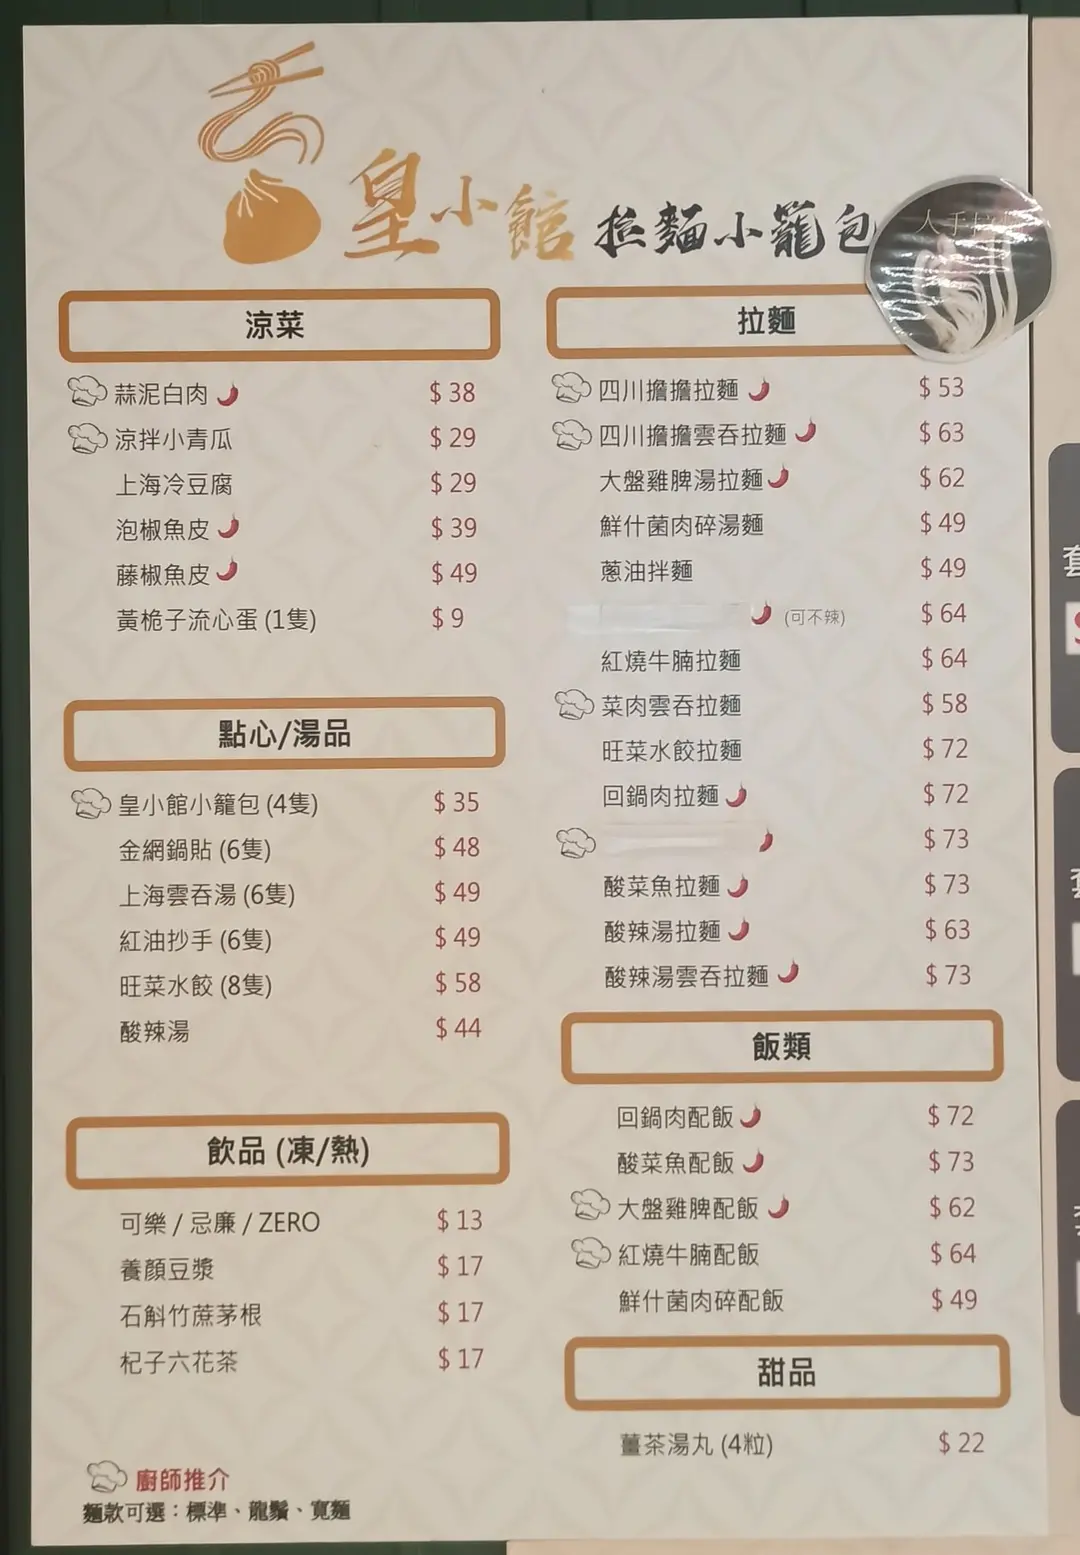 皇小館 拉麵小籠包
人手拉
涼菜
蒜泥白肉 $ 38
涼拌小青瓜 $ 29
上海冷豆腐 $ 29
泡椒魚皮 $ 39
藤椒魚皮 $ 49
黃桅子流心蛋 (1隻) $ 9
點心/湯品
皇小館小籠包 (4隻) $ 35
金網鍋貼 (6隻) $ 48
上海雲吞湯 (6隻) $ 49
紅油抄手 (6隻) $ 49
旺菜水餃 (8隻) $ 58
酸辣湯 $ 44
飲品 (凍/熱)
可樂 / 忌廉 / ZERO $ 13
養顏豆漿 $ 17
石斛竹蔗茅根 $ 17
杞子六花茶 $ 17
廚師推介
麵款可選：標準、龍鬚、寬麵
拉麵
四川擔擔拉麵 $ 53
四川擔擔雲吞拉麵 $ 63
大盤雞脾湯拉麵 $ 62
鮮什菌肉碎湯麵 $ 49
蔥油拌麵 $ 49
(可不辣) $ 64
紅燒牛腩拉麵 $ 64
菜肉雲吞拉麵 $ 58
旺菜水餃拉麵 $ 72
回鍋肉拉麵 $ 72
$ 73
酸菜魚拉麵 $ 73
酸辣湯拉麵 $ 63
酸辣湯雲吞拉麵 $ 73
飯類
回鍋肉配飯 $ 72
酸菜魚配飯 $ 73
大盤雞脾配飯 $ 62
紅燒牛腩配飯 $ 64
鮮什菌肉碎配飯 $ 49
甜品
薑茶湯丸 (4粒) $ 22